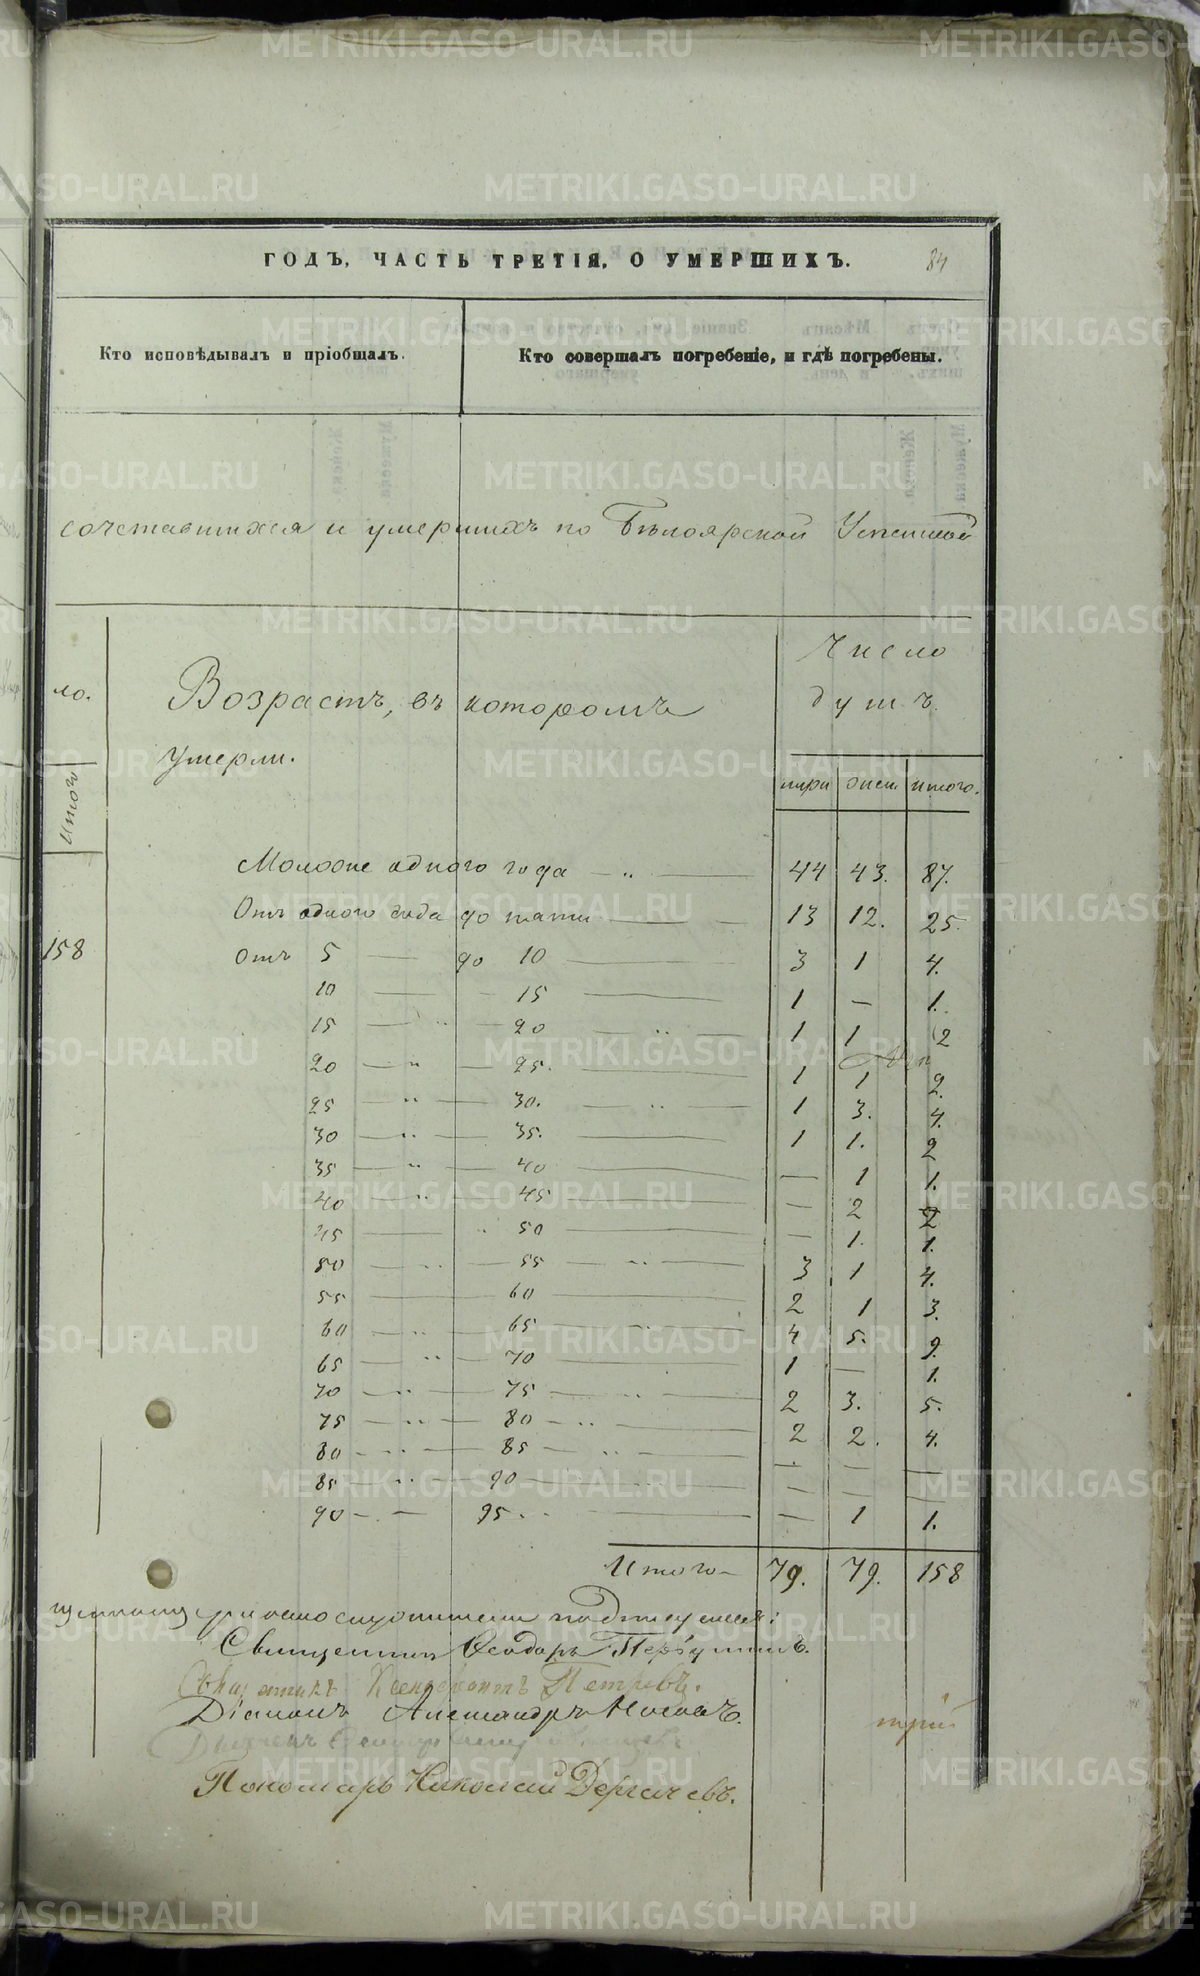 ГОДЪ, ЧАСТЬ ТРЕТІЯ, О УМЕРШИХЪ. 84
Кто исповѣдывалъ и пріобщалъ. Кто совершалъ погребеніе, и гдѣ погребены.
сочетавшихся и умершихъ по Бѣлоярской Успенской
ло. Возрастъ, въ которомъ умерли. Число душъ.
итого муж жен. итого.
Моложе одного года — „ — 44 43. 87.
Отъ одного года до пяти — 13 12. 25.
158
Отъ 5 — до 10 — 3 1 4.
10 — 15 — 1 — 1.
15 — „ — 20 — „ — 1 1 2
20 — „ — 25. — 1 1 2.
25 — „ — 30. — „ — 1 3. 4.
30 — „ — 35. — 1 1. 2
35 — „ — 40 — — 1 1.
40 — „ — 45 — — 2 2
45 — „ 50 — — 1. 1.
50 — „ — 55 — „ — 3 1 4.
55 — 60 — 2 1 3.
60 — „ — 65 — „ — 4 5. 9.
65 — „ — 70 — 1 — 1.
70 — „ — 75 — „ — 2 3. 5.
75 — „ — 80 — „ — 2 2. 4.
80 — „ — 85 — „ — — — —
85 „ — 90 — „ — — — —
90 — „ — 95 „ — — 1 1.
Итого — 79. 79. 158
Священникъ Ѳеодоръ
Священникъ Ксенофонтъ Петровъ.
Діаконъ Александръ Носовъ.
Пономарь Николай Дергачевъ.
METRIKI.GASO-URAL.RU